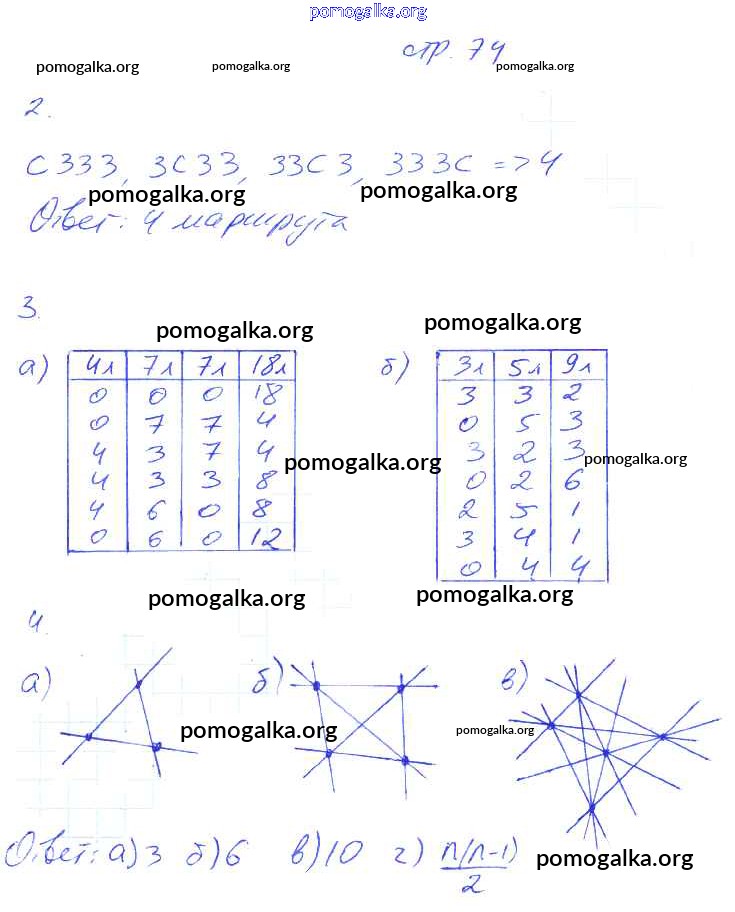 pomogalka.org
стр. 74
pomogalka.org pomogalka.org pomogalka.org
2.
СЗЗЗ, ЗСЗЗ, ЗЗСЗ, ЗЗЗС => 4
pomogalka.org pomogalka.org
Ответ: 4 маршрута
3.
pomogalka.org pomogalka.org
а)
4л 7л 7л 18л
0 0 0 18
0 7 7 4
4 3 7 4
4 3 3 8
4 6 0 8
0 6 0 12
pomogalka.org
б)
3л 5л 9л
3 3 2
0 5 3
3 2 3
0 2 6
2 5 1
3 4 1
0 4 4
pomogalka.org
pomogalka.org pomogalka.org
4.
а) б) в)
pomogalka.org pomogalka.org
Ответ: а) 3 б) 6 в) 10 г) n(n-1)
2
pomogalka.org